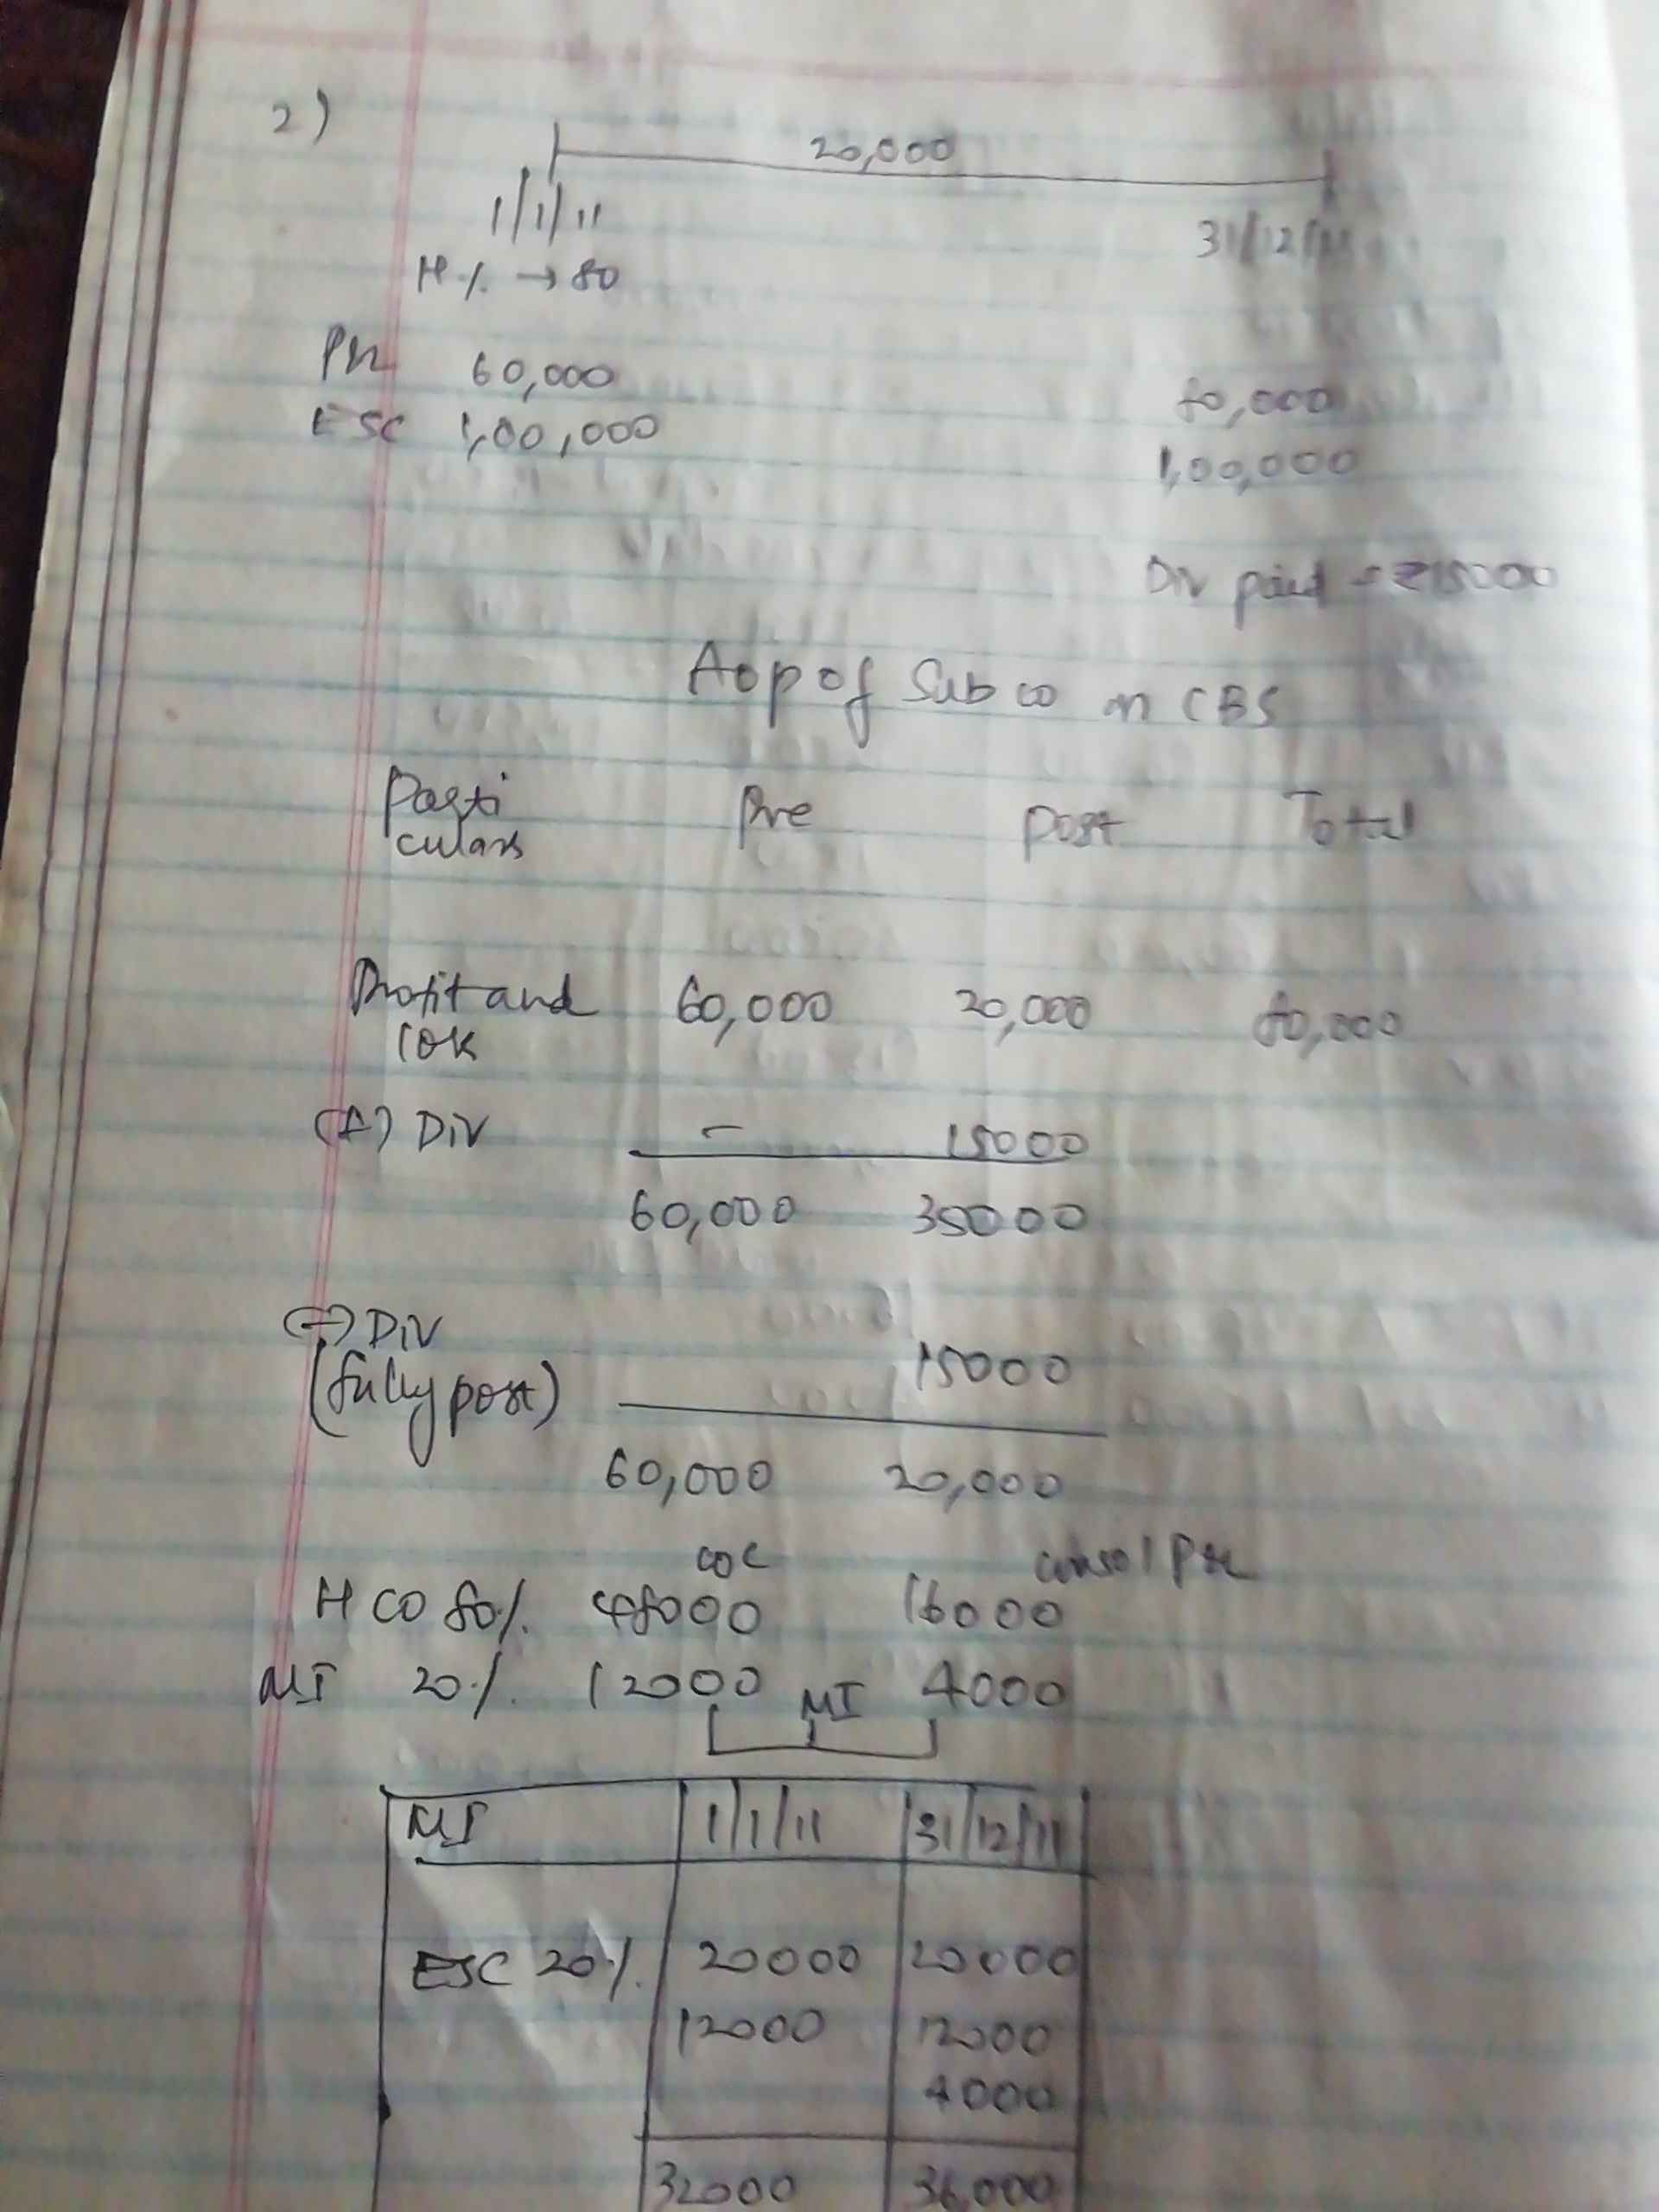 2)
20,000
1/1/11 31/12/11
H% → 80
P&L 60,000 80,000
ESC 1,00,000 1,00,000
Div paid = ₹15000
AOP of Sub co in CBS
Parti Pre Post Total
culars
Profit and 60,000 20,000 80,000
loss
(+) Div - 15000
60,000 35000
(-) Div
(fully post) 15000
60,000 20,000
COC consol P&L
H CO 80% 48000 16000
MI 20% 12000 MI 4000
MI 1/1/11 31/12/11
ESC 20% 20000 20000
12000 12000
4000
32000 36,000